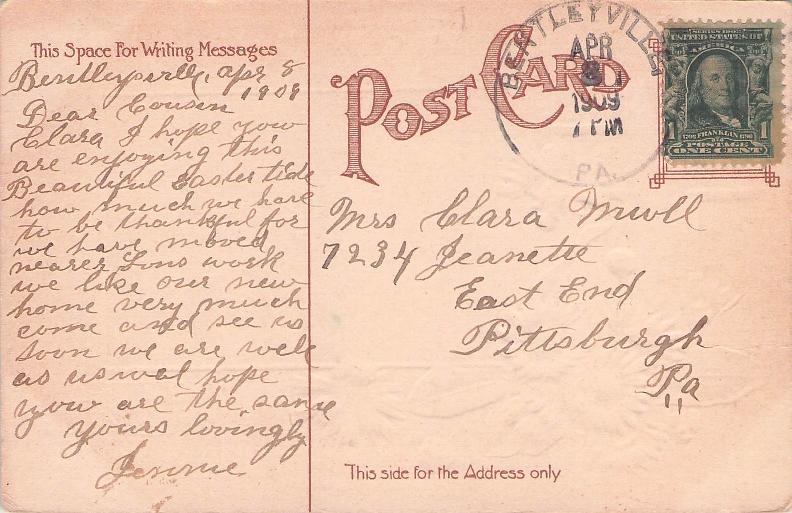 This Space For Writing Messages
Bentleysville, apr 8
1909
Dear Cousin
Clara I hope you
are enjoying this
Beautiful Easter tide
how much we have
to be thankful for
we have moved
nearer Sons work
we like our new
home very much
come and see us
soon we are well
as usual hope
you are the same
yours lovingly
Jennie
POST CARD
BENTLEYVILLE
APR
8
1909
7 PM
PA.
SERIES 1902
UNITED STATES OF
AMERICA
1 FRANKLIN 1
POSTAGE
ONE CENT
Mrs Clara
7234 Jeanette
East End
Pittsburgh
Pa
This side for the Address only